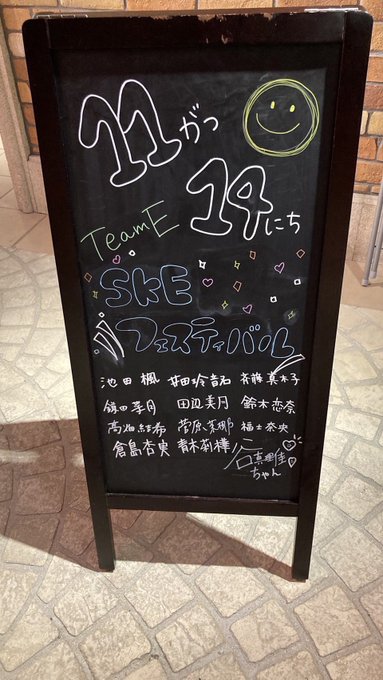 11がつ
14にち
TeamE
SKE
フェスティバル
池田 楓 井田玲音名 斉藤真木子
鎌田菜月 田辺美月 鈴木恋奈
高畑結希 菅原茉椰 福士奈央
倉島杏実 青木莉樺 谷真理佳
ちゃん